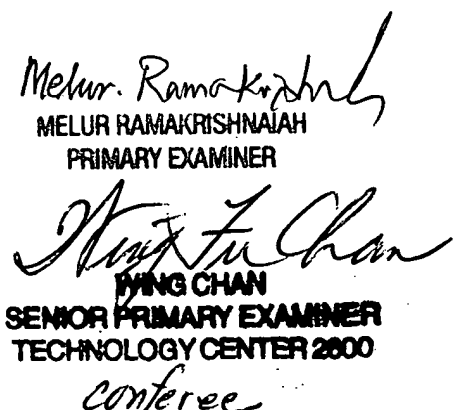 Melur. Ramakrishnah
MELUR RAMAKRISHNAIAH
PRIMARY EXAMINER
Wing Fu Chan
WING CHAN
SENIOR PRIMARY EXAMINER
TECHNOLOGY CENTER 2600
conferee